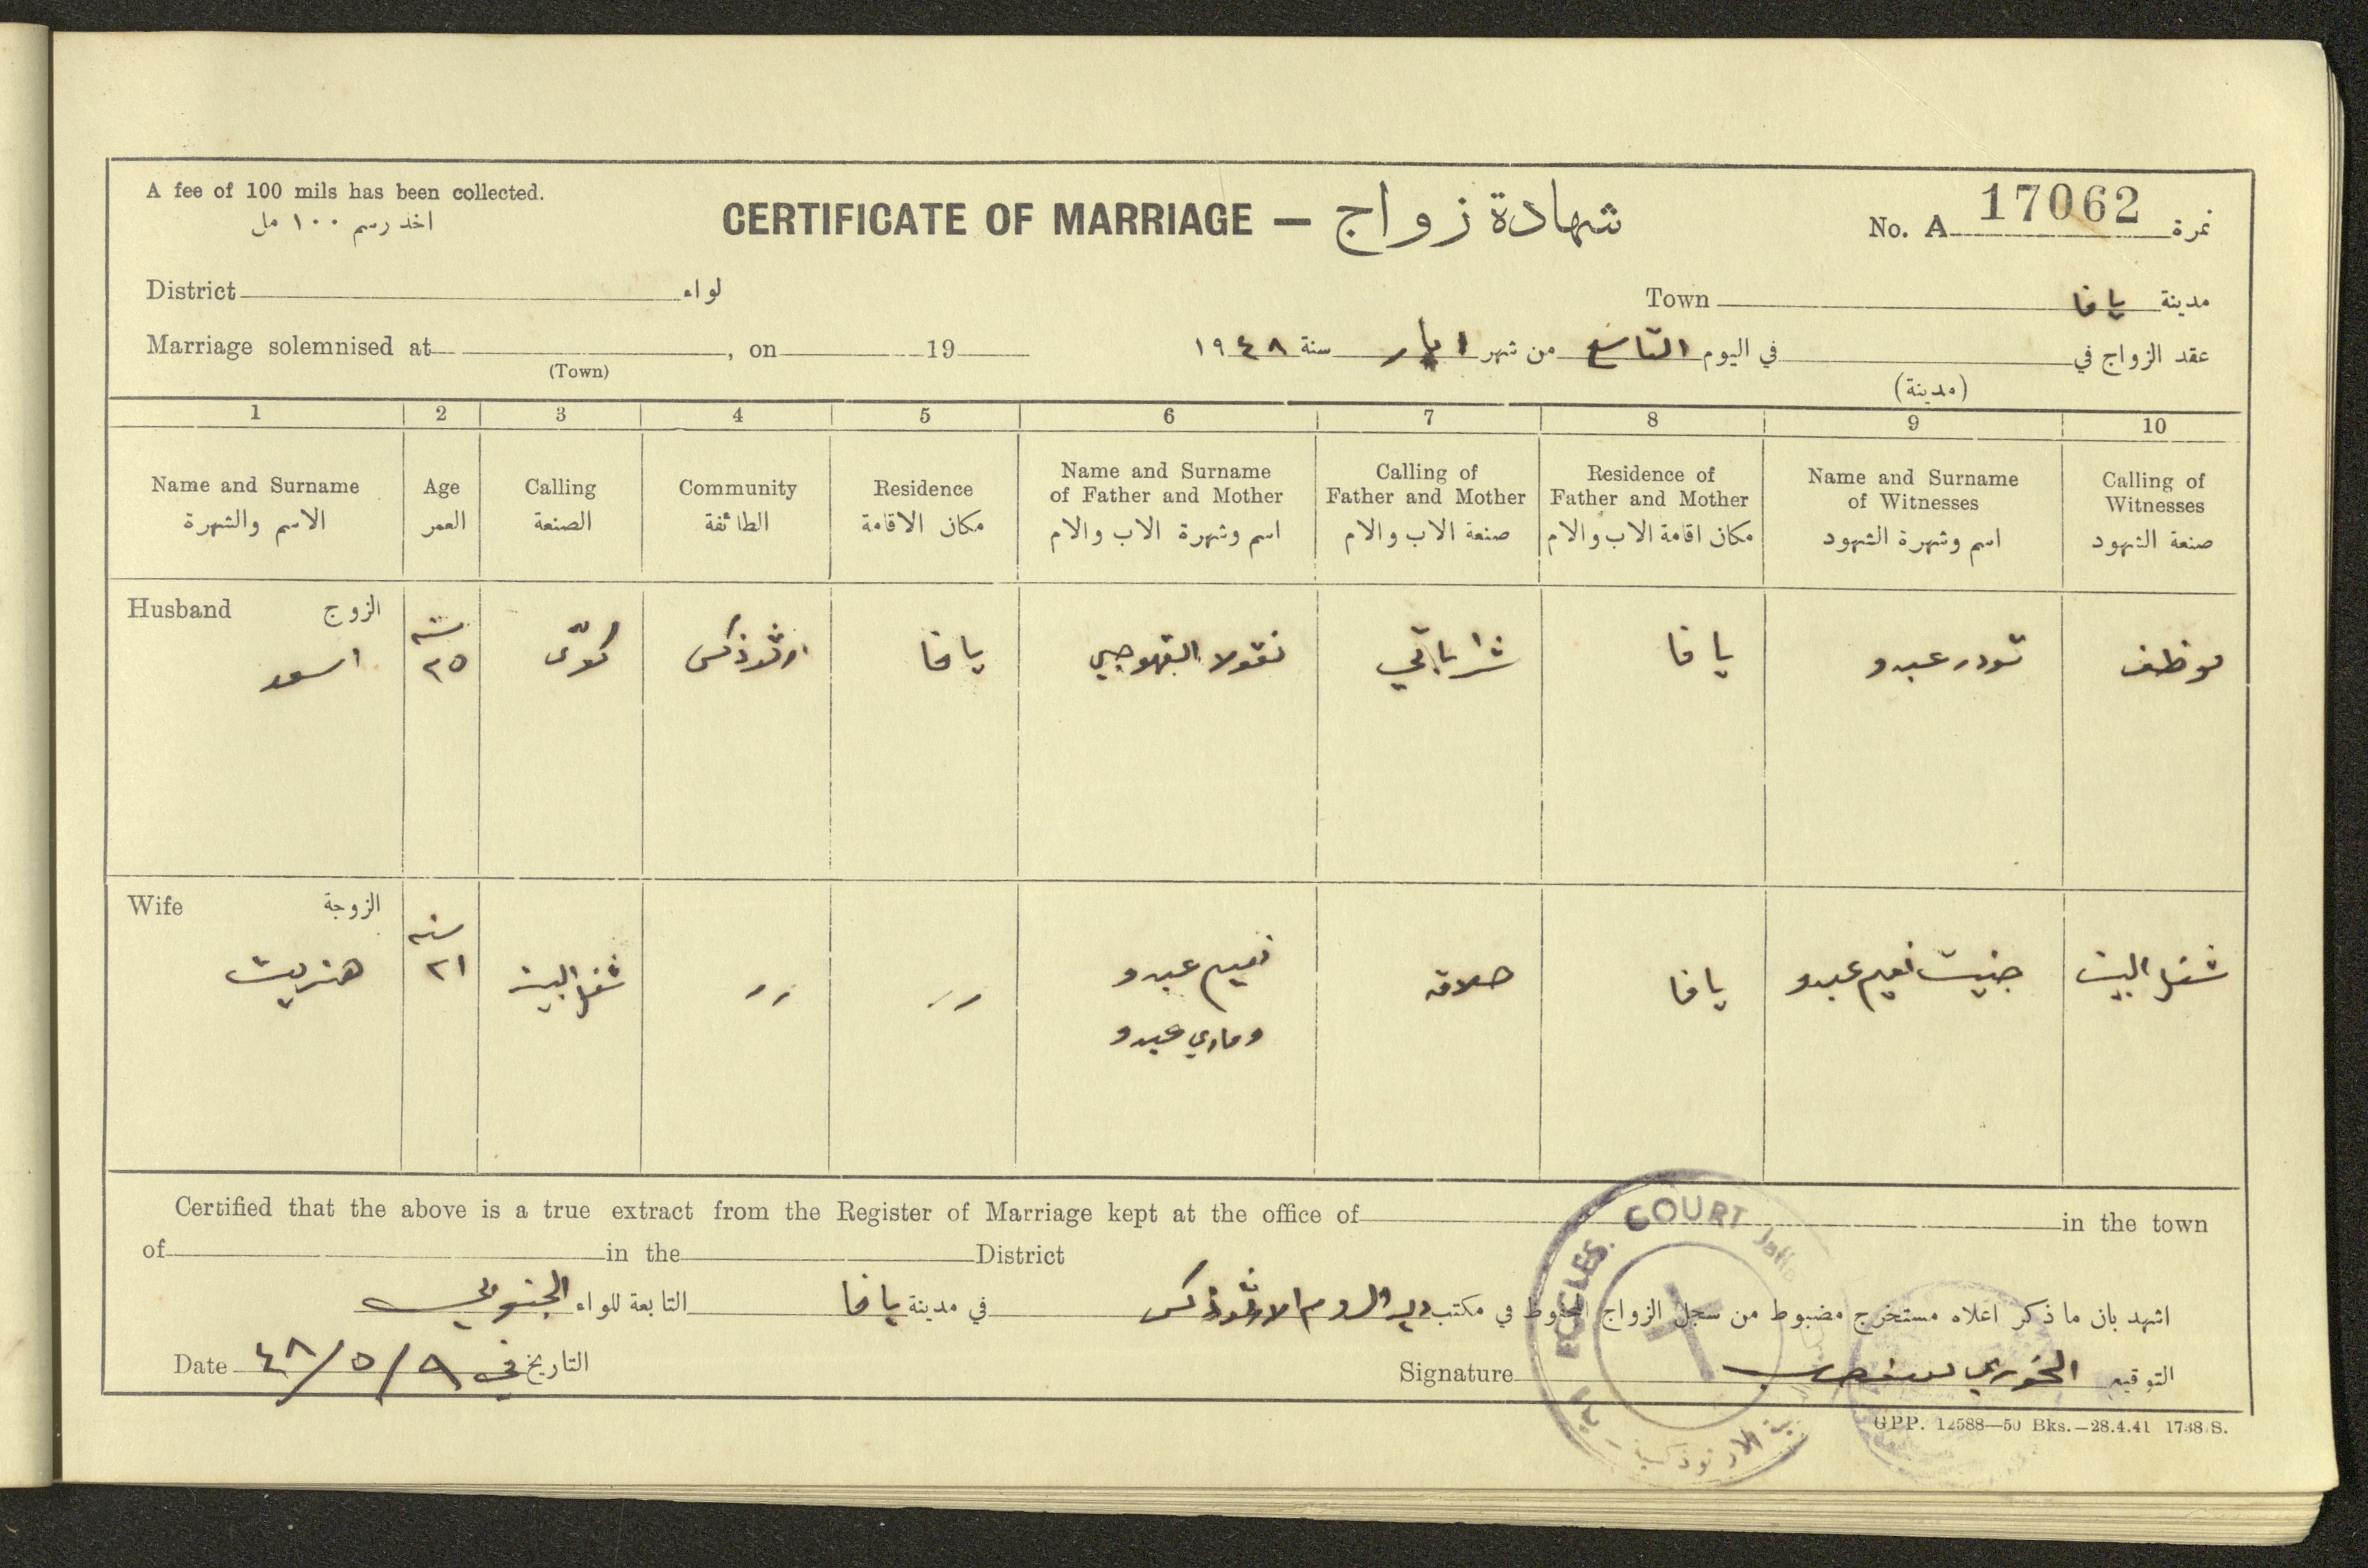 A fee of 100 mils has been collected.
اخذ رسم ١٠٠ مل
CERTIFICATE OF MARRIAGE — شهادة زواج
No. A 17062 نمرة
District لواء
Town مدينة يافا
Marriage solemnised at , on 19
(Town)
عقد الزواج في في اليوم التاسع من شهر ايار سنة ١٩٤٨
(مدينة)
1 2 3 4 5 6 7 8 9 10
Name and Surname
الاسم والشهرة
Age
العمر
Calling
الصنعة
Community
الطائفة
Residence
مكان الاقامة
Name and Surname
of Father and Mother
اسم وشهرة الاب والام
Calling of
Father and Mother
صنعة الاب والام
Residence of
Father and Mother
مكان اقامة الاب والام
Name and Surname
of Witnesses
اسم وشهرة الشهود
Calling of
Witnesses
صنعة الشهود
Husband الزوج
اسعد
سنه
٢٥
كوّى
ارثوذكس
يافا
نقولا القهوجي
شراباتي
يافا
تودر عبدو
موظف
Wife الزوجة
هنريت
سنه
٢١
شغل البيت
〃
〃
نعيم عبدو
وماري عبدو
حلاقه
يافا
جنيت نعيم عبدو
شغل البيت
Certified that the above is a true extract from the Register of Marriage kept at the office of in the town
of in the District
اشهد بان ما ذكر اعلاه مستخرج مضبوط من سجل الزواج المحفوظ في مكتب دير الروم الارثوذكس في مدينة يافا التابعة للواء الجنوبي
Date ٤٨/٥/٩ التاريخ في
Signature الخوري التوقيع
ECCLES. COURT Jaffa
G.P.P. 12588—50 Bks.—28.4.41 1738/S.